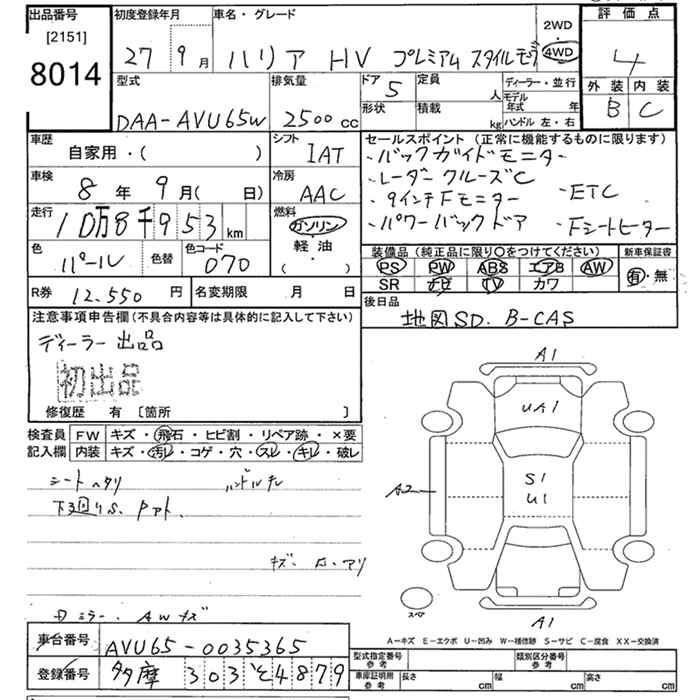 出品番号
[2151]
8014
初度登録年月
27 9月
車名・グレード
ハリア HV プレミアム スタイルモヴ
2WD
4WD
評価点
4
外装 内装
B C
型式
DAA-AVU65W
排気量
2500 cc
ドア 5
形状
定員 人
積載 kg
ディーラー・並行
モデル年式 年
ハンドル 左・右
車歴
自家用・( )
シフト
IAT
車検
8年 9月( 日)
冷房
AAC
走行
10万8千953 km
燃料
ガソリン
軽油
( ・ )
色
パール
色替
色コード
070
セールスポイント (正常に機能するものに限ります)
・バックガイドモニター
・レーダークルーズC
・9インチFモニター ・ETC
・パワーバックドア ・Fシートヒーター
装備品 (純正品に限り○をつけてください) 新車保証書
PS PW ABS エアB AW
SR ナビ TV カワ
有・無
R券 12,550 円
名変期限 月 日
後日品
地図SD. B-CAS
注意事項申告欄 (不具合内容等は具体的に記入して下さい)
ディーラー出品
初出品
修復歴 有 [箇所 ]
検査員記入欄
FW キズ・飛石・ヒビ割・リペア跡・×要
内装 キズ・汚レ・コゲ・穴・スレ・キレ・破レ
シートヘタリ ハンドルキレ
下回りS.
A1
UA1
S1
U1
A2
A1
スペア
A-キズ E-エクボ U-凹み W-補修跡 S-サビ C-腐食 XX-交換済
ミラー. AWキズ
車台番号 AVU65-0035365
登録番号 多摩 303 と4879
型式指定番号 参考
類別区分番号 参考
車庫証明用 参考
長さ cm 幅 cm 高さ cm